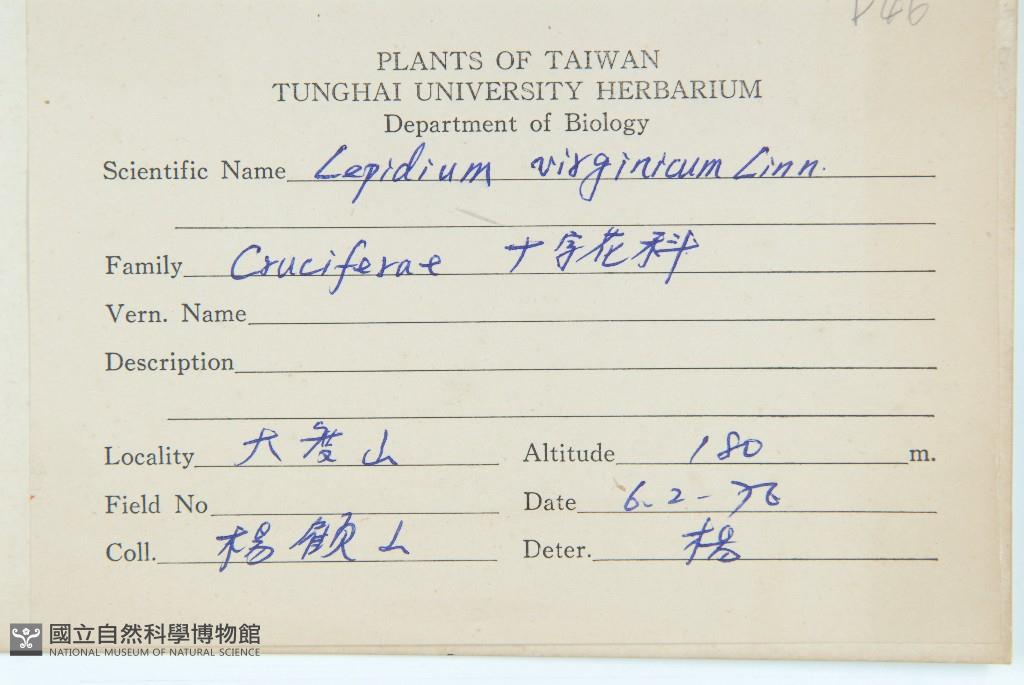 P46
PLANTS OF TAIWAN
TUNGHAI UNIVERSITY HERBARIUM
Department of Biology
Scientific Name Lepidium virginicum Linn.
Family Cruciferae 十字花科
Vern. Name
Description
Locality 大度山 Altitude 180 m.
Field No Date 6.2-76
Coll. 楊 Deter. 楊
國立自然科學博物館
NATIONAL MUSEUM OF NATURAL SCIENCE